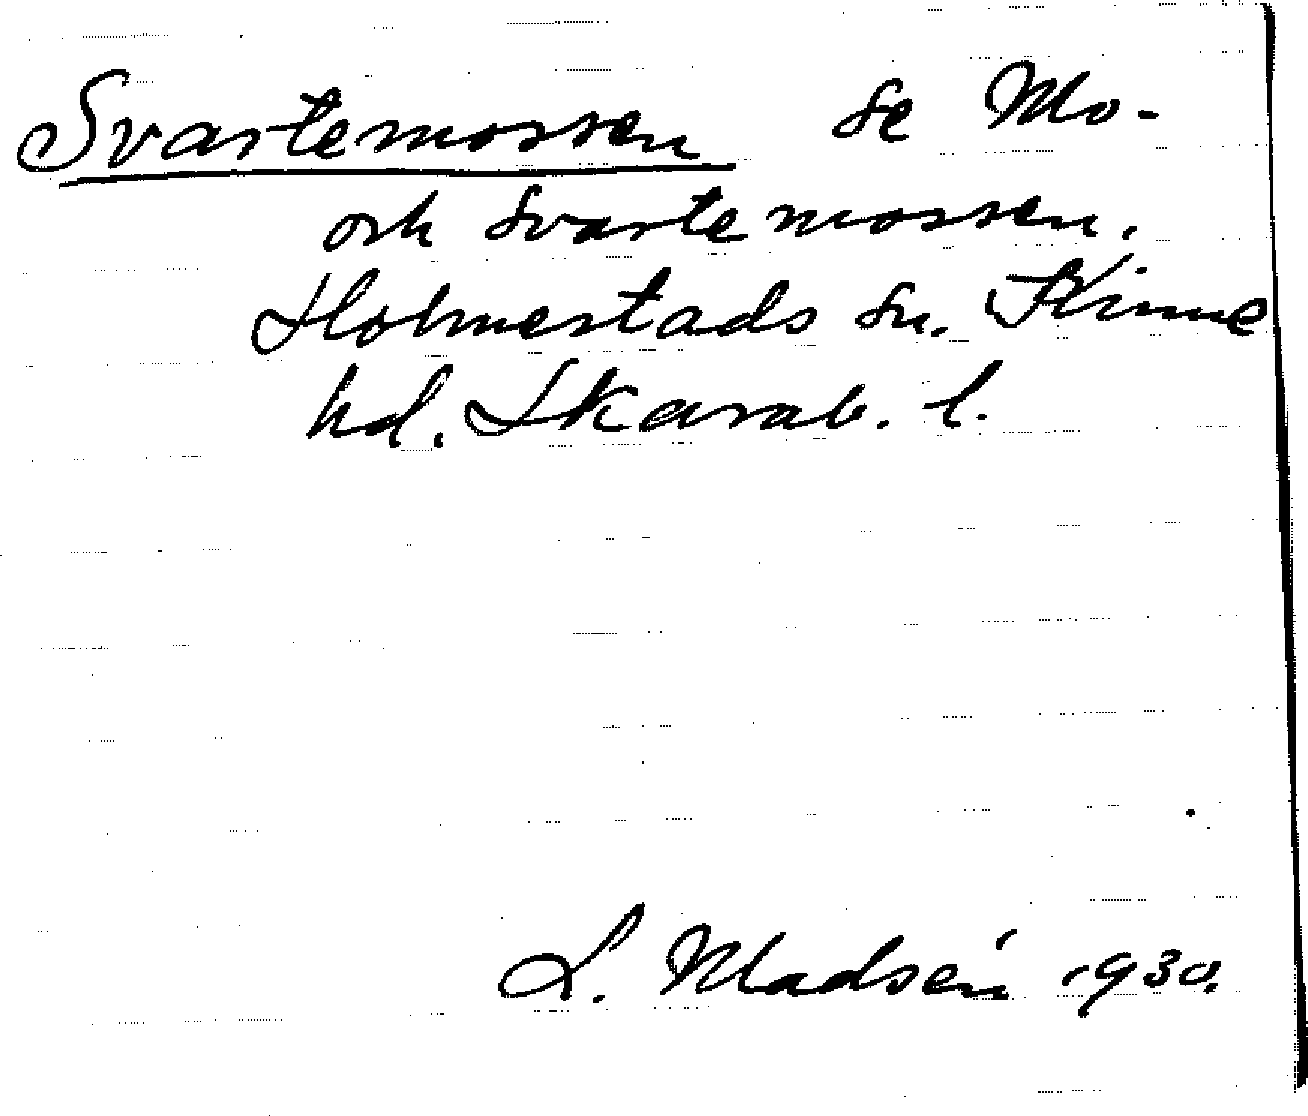 Svartemossen se Mo-
och Svartemossen.
Holmestads sn. Kinne
hd. Skarab. l.
L. Madsén 1930.